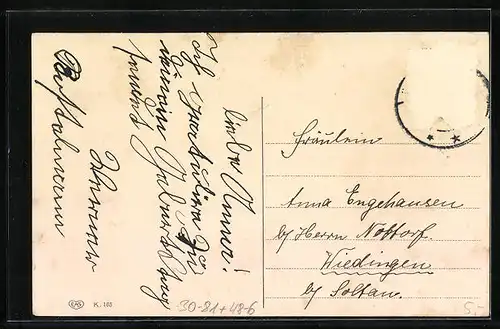 Liebe Anna!
Ich gratuliere Dir
zu deinem Geburtstag
Hermann
Fräulein
Anna Engehausen
b/ Herrn Nottorf.
Wiedingen
b/ Soltau.
EAS K. 103
30-81+48-6
5.-